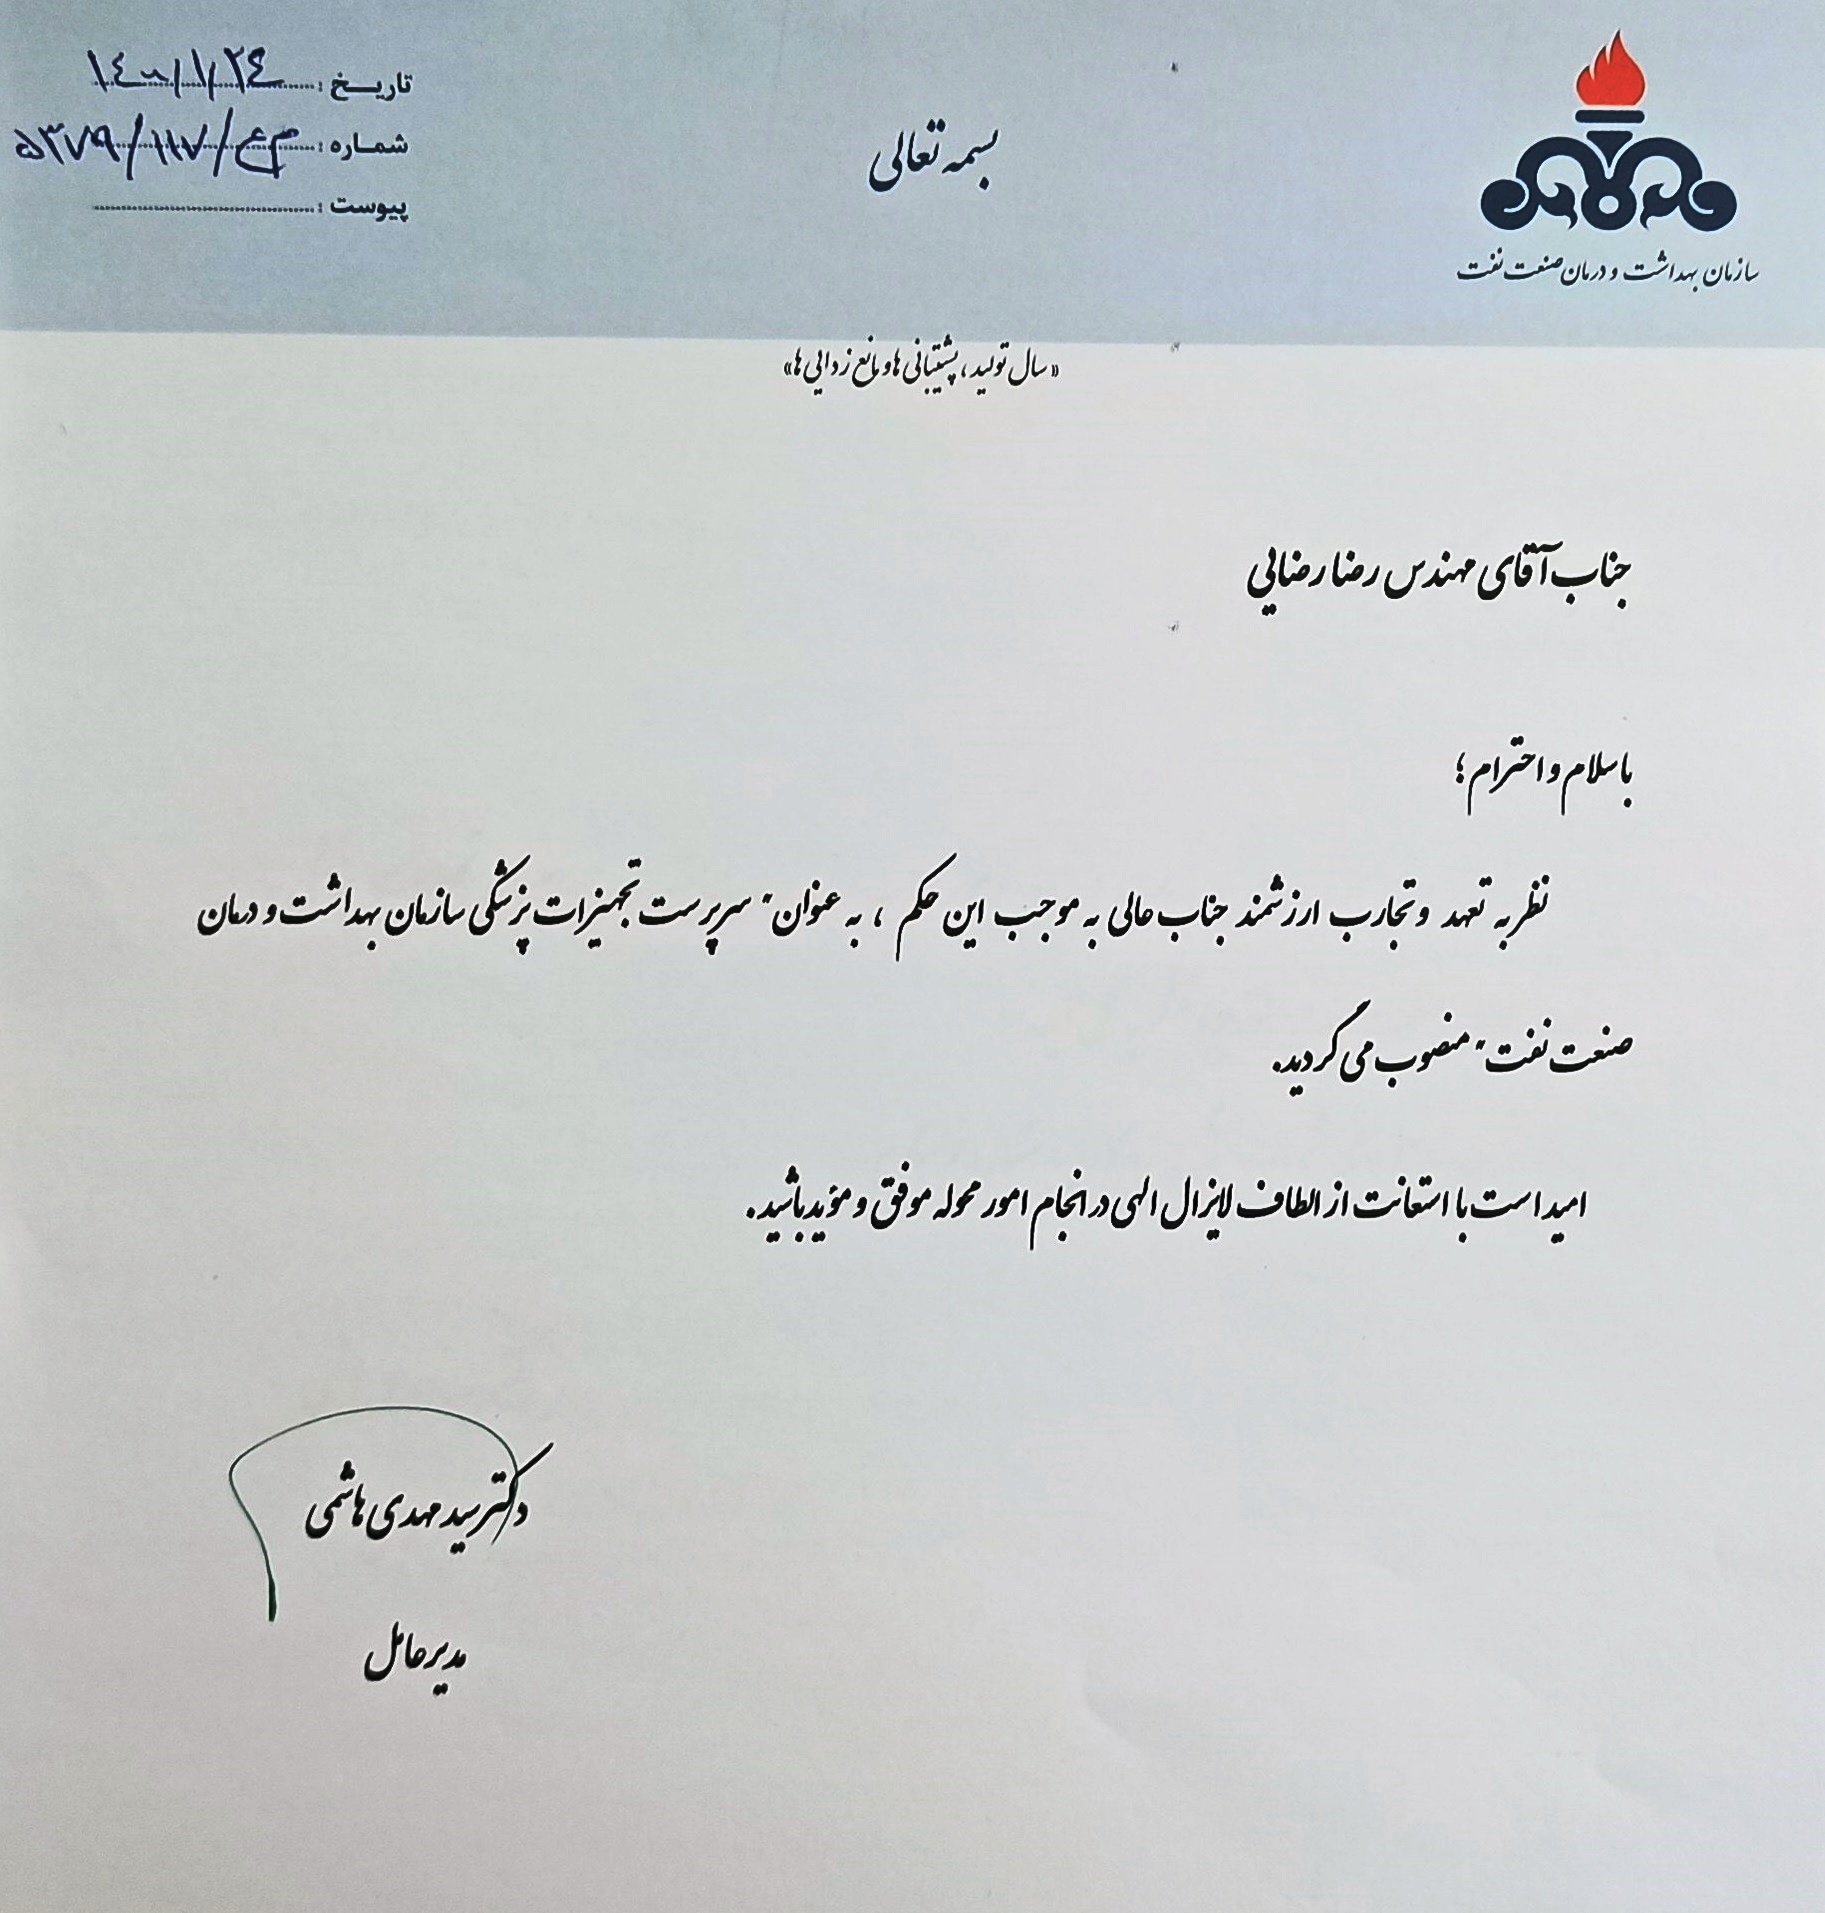 بسمه تعالی
سازمان بهداشت و درمان صنعت نفت
تاریخ : ۱۴۰۰/۱/۲۴
شماره : م ع/۱۱۷/۵۳۷۹
پیوست :
«سال تولید، پشتیبانی ها و مانع زدایی ها»
جناب آقای مهندس رضا رضایی
با سلام و احترام ؛
نظر به تعهد و تجارب ارزشمند جناب عالی به موجب این حکم ، به عنوان " سرپرست تجهیزات پزشکی سازمان بهداشت و درمان
صنعت نفت " منصوب می گردید.
امید است با استعانت از الطاف لایزال الهی در انجام امور محوله موفق و مؤید باشید.
دکتر سید مهدی هاشمی
مدیرعامل